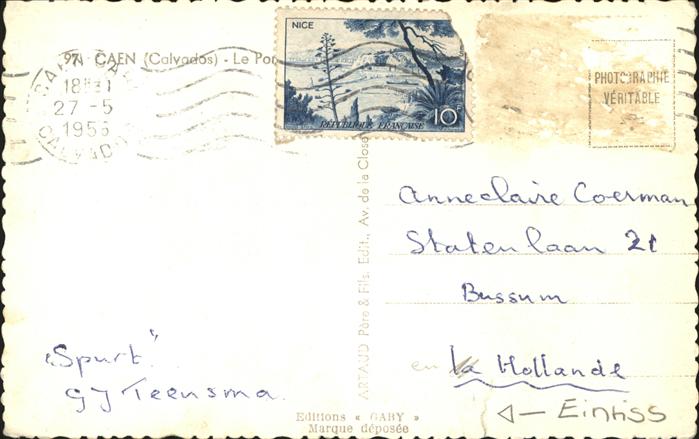 97. - CAEN (Calvados) - Le
NICE
10F
RÉPUBLIQUE FRANÇAISE
PHOTOGRAPHIE
VÉRITABLE
27 - 5
CALVADOS
ARTAUD Père & Fils. Edit., Av. de la Close
Anneclaire Coerman
Statenlaan 21
Bussum
en la Hollande
„Spurt"
GJ Teensma
Editions « GABY »
Marque déposée